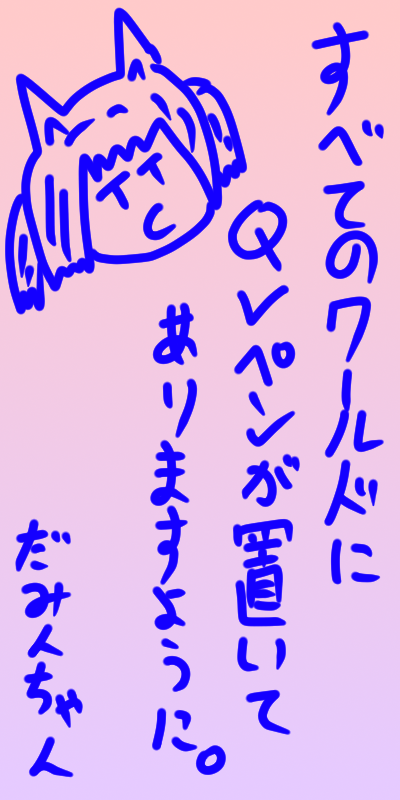 すべてのワールドに
Qvペンが置いて
ありますように。
だみんちゃん